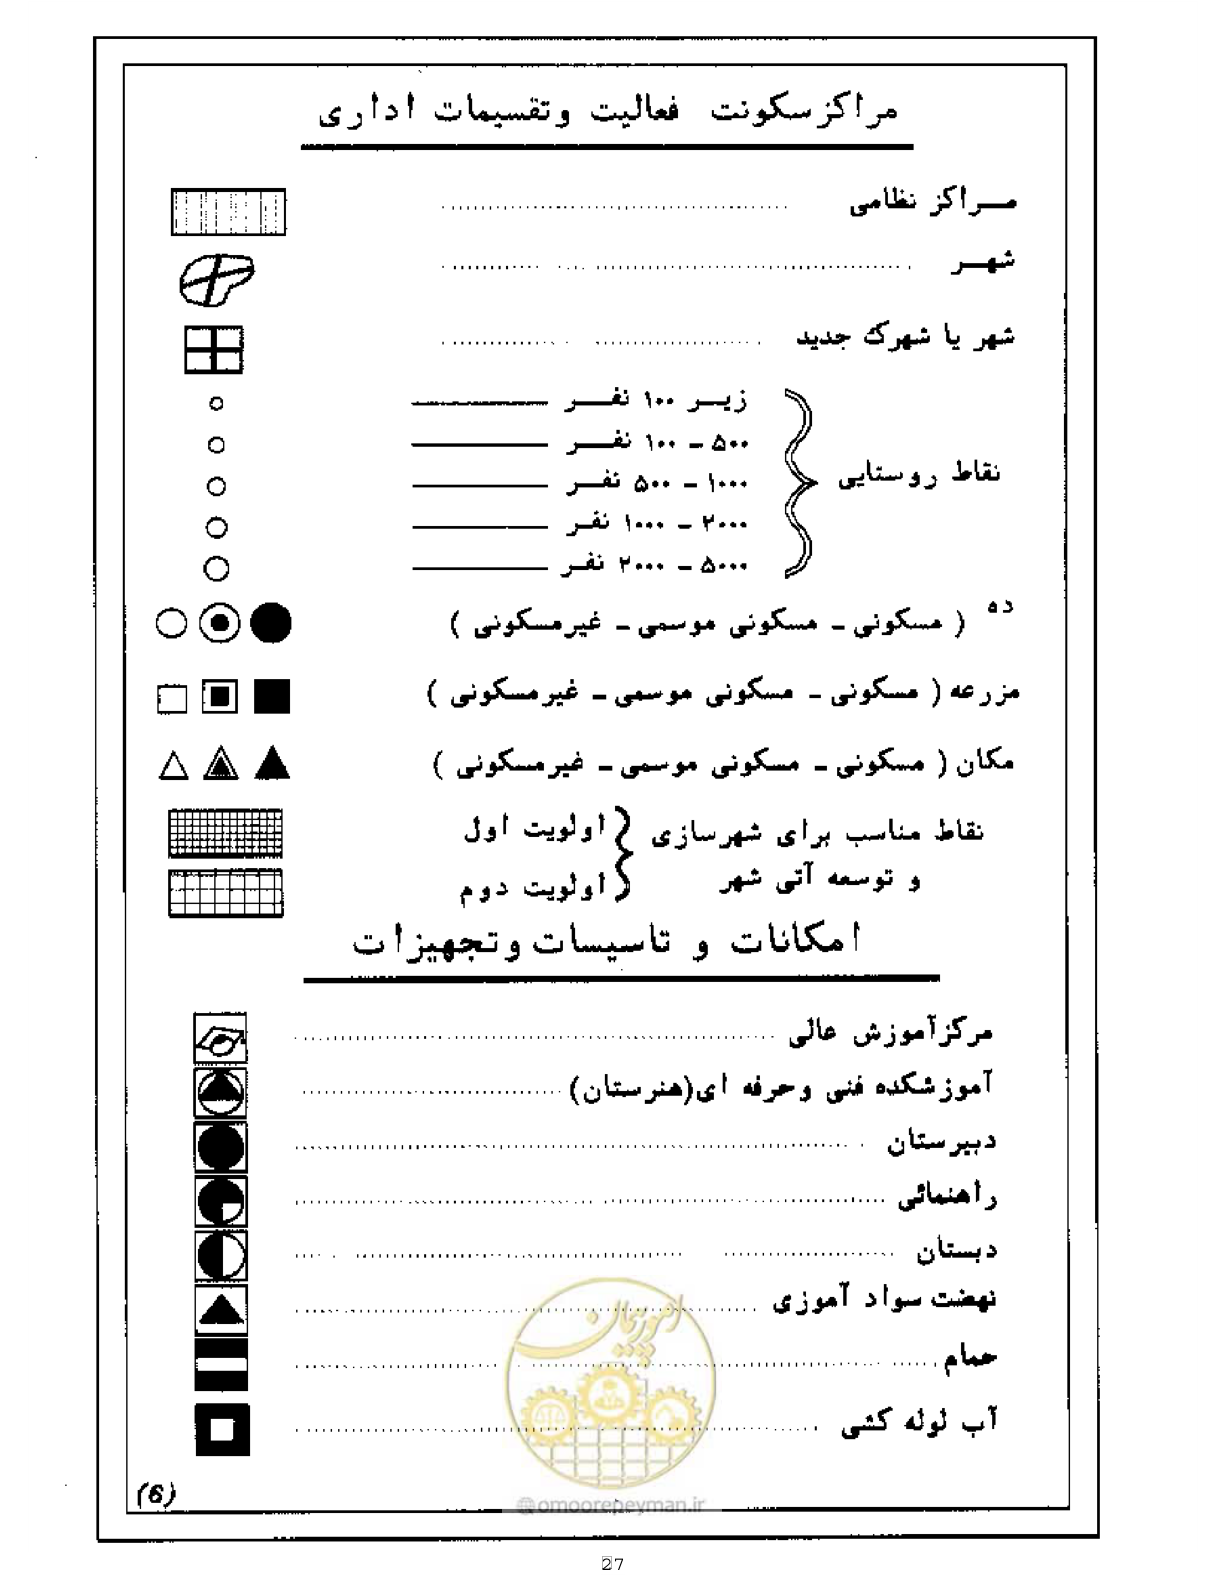 مراکز سکونت فعالیت وتقسیمات اداری
مراکز نظامی
شهر
شهر یا شهرک جدید
نقاط روستایی
زیر ۱۰۰ نفر
۵۰۰ - ۱۰۰ نفر
۱۰۰۰ - ۵۰۰ نفر
۲۰۰۰ - ۱۰۰۰ نفر
۵۰۰۰ - ۲۰۰۰ نفر
ده ( مسکونی - مسکونی موسمی - غیرمسکونی )
مزرعه ( مسکونی - مسکونی موسمی - غیرمسکونی )
مکان ( مسکونی - مسکونی موسمی - غیرمسکونی )
نقاط مناسب برای شهرسازی
و توسعه آتی شهر
اولویت اول
اولویت دوم
امکانات و تاسیسات وتجهیزات
مرکزآموزش عالی
آموزشکده فنی وحرفه ای(هنرستان)
دبیرستان
راهنمائی
دبستان
نهضت سواد آموزی
حمام
آب لوله کشی
امور پیمان
@omoorepeyman.ir
(6)
27